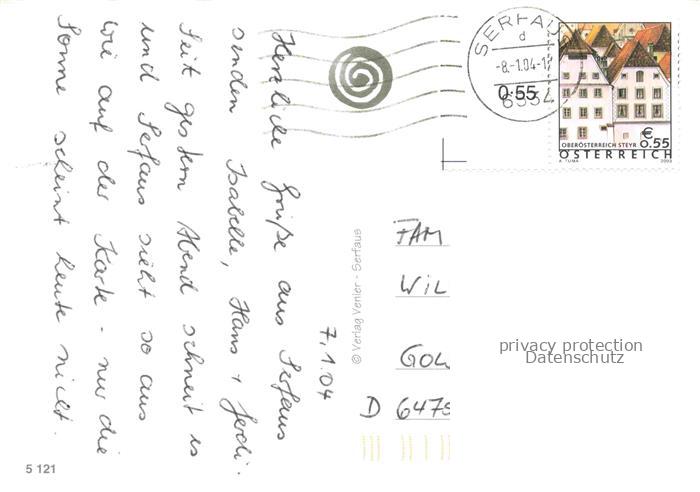 7.1.04
Herzliche Grüße aus Serfaus
senden Isabelle, Hans + Gerdi.
Seit gestern Abend schneit es
und Serfaus sieht so aus
wie auf der Karte - nur die
Sonne scheint heute nicht.
© Verlag Venier - Serfaus
SERFAUS
d
-8.-1.04-1
6534
0.55
€
0.55
OBERÖSTERREICH STEYR
ÖSTERREICH
A. TUMA 2003
FAM
WIL
GOL
D 6475
privacy protection
Datenschutz
5 121